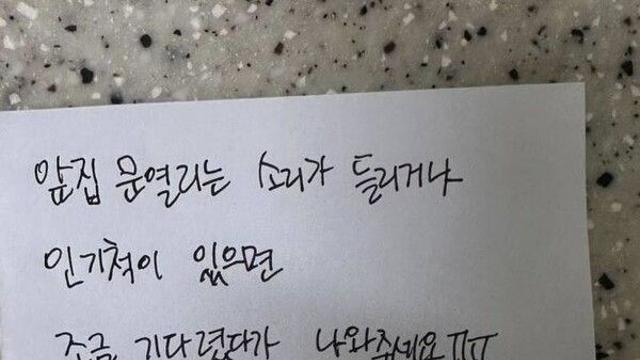 앞집 문열리는 소리가 들리거나
인기척이 있으면
조금 기다렸다가 나와주세요ㅠㅠ